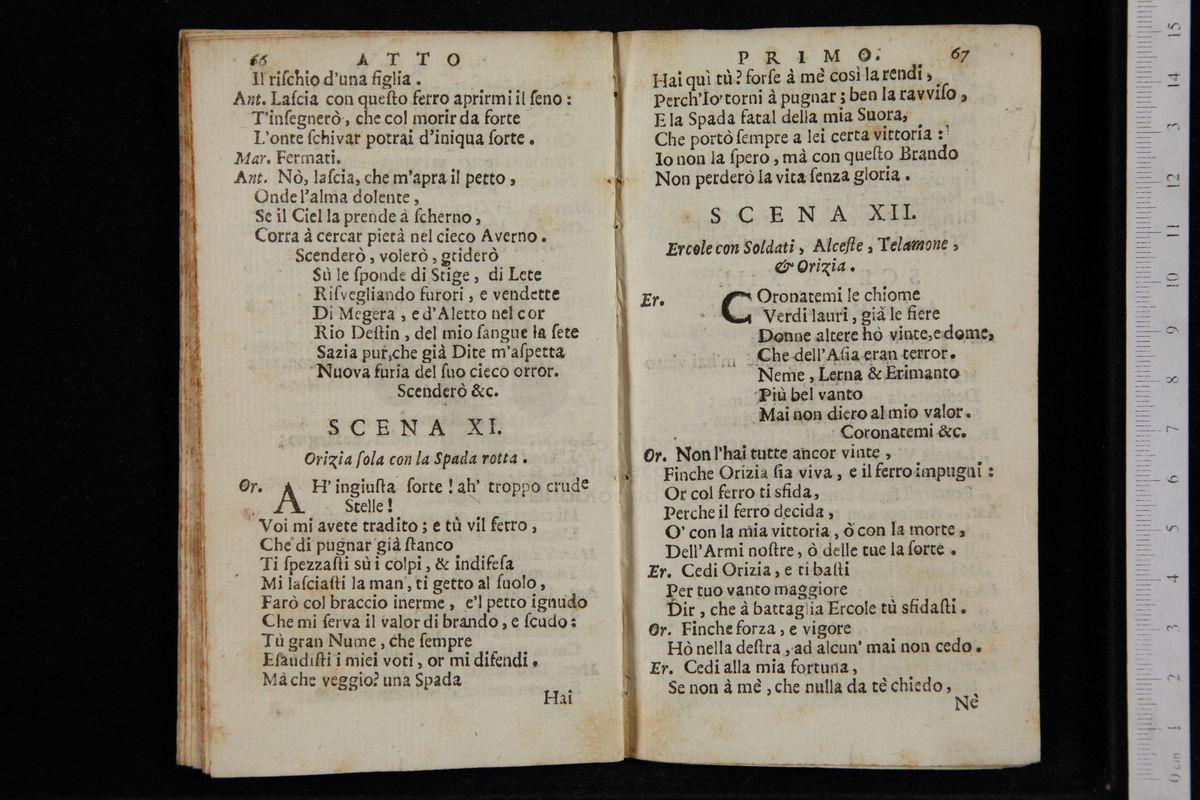 66 ATTO
Il riſchio d'una figlia.
Ant. Laſcia con queſto ferro aprirmi il ſeno:
T'inſegnerò, che col morir da forte
L'onte ſchivar potrai d'iniqua ſorte.
Mar. Fermati.
Ant. Nò, laſcia, che m'apra il petto,
Onde l'alma dolente,
Se il Ciel la prende à ſcherno,
Corra à cercar pietà nel cieco Averno.
Scenderò, volerò, gtiderò
Sù le ſponde di Stige, di Lete
Riſvegliando furori, e vendette
Di Megera, e d'Aletto nel cor
Rio Deſtin, del mio ſangue la ſete
Sazia pur, che già Dite m'aſpetta
Nuova furia del ſuo cieco orror.
Scenderò &c.
SCENA XI.
Orizia ſola con la Spada rotta.
Or. AH' ingiuſta ſorte! ah' troppo crude
Stelle!
Voi mi avete tradito; e tù vil ferro,
Che di pugnar già ſtanco
Ti ſpezzaſti sù i colpi, & indifeſa
Mi laſciaſti la man, ti getto al ſuolo,
Farò col braccio inerme, e'l petto ignudo
Che mi ſerva il valor di brando, e ſcudo:
Tù gran Nume, che ſempre
Eſaudiſti i miei voti, or mi difendi.
Mà che veggio? una Spada
Hai
PRIMO. 67
Hai quì tù? forſe à mè così la rendi,
Perch'Io torni à pugnar; ben la ravviſo,
E la Spada fatal della mia Suora,
Che portò ſempre a lei certa vittoria:
Io non la ſpero, mà con queſto Brando
Non perderò la vita ſenza gloria.
SCENA XII.
Ercole con Soldati, Alceſte, Telamone,
& Orizia.
Er. COronatemi le chiome
Verdi lauri, già le fiere
Donne altere hò vinte, e dome,
Che dell'Aſia eran terror.
Neme, Lerna & Erimanto
Più bel vanto
Mai non diero al mio valor.
Coronatemi &c.
Or. Non l'hai tutte ancor vinte,
Finche Orizia ſia viva, e il ferro impugni:
Or col ferro ti sfida,
Perche il ferro decida,
O' con la mia vittoria, ò con la morte,
Dell'Armi noſtre, ò delle tue la ſorte.
Er. Cedi Orizia, e ti baſti
Per tuo vanto maggiore
Dir, che à battaglia Ercole tù sfidaſti.
Or. Finche forza, e vigore
Hò nella deſtra, ad alcun' mai non cedo.
Er. Cedi alla mia fortuna,
Se non à mè, che nulla da tè chiedo,
Nè
0 cm 1 2 3 4 5 6 7 8 9 10 11 12 13 14 15